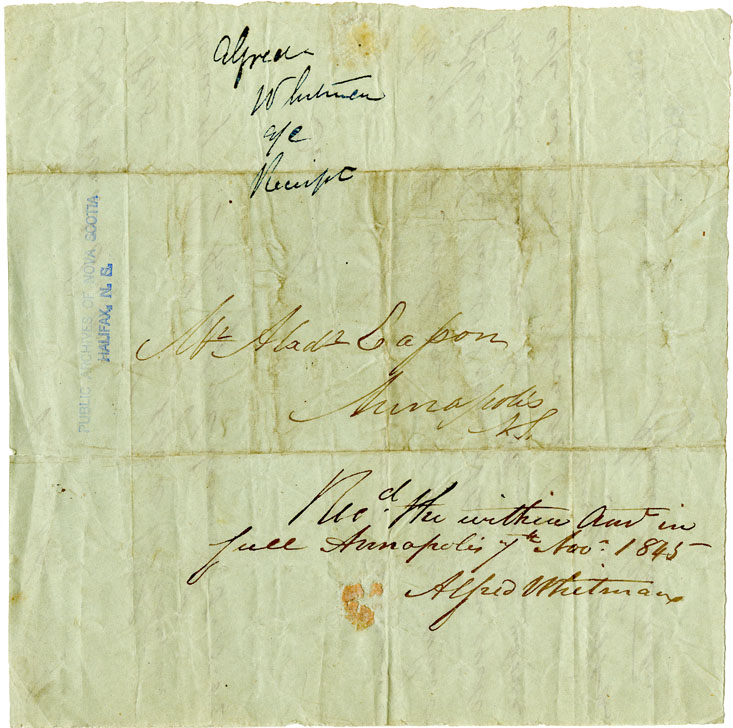 Alfred
Whitman
a/c
Receipt
PUBLIC ARCHIVES OF NOVA SCOTIA
HALIFAX, N. S.
Mr
Annapolis
N.S.
Recd. the within in
full Annapolis 7th Nov. 1845
Alfred Whitman